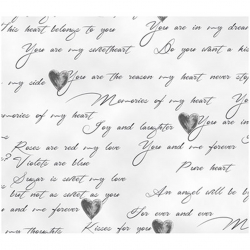 This heart belongs to you
You are in my dream
You are my sweetheart
Do you want a ki
my side
You are the reason my heart never sto
Memories of my heart
Joy and laughter
You are in
Roses are red my love
You and me forever
Violets are blue
Pure heart
Sugar is sweet my love
but not as sweet as you
An angel will be by
and me forever
For ever and ever
my thoughts
Kisses for you
Mem